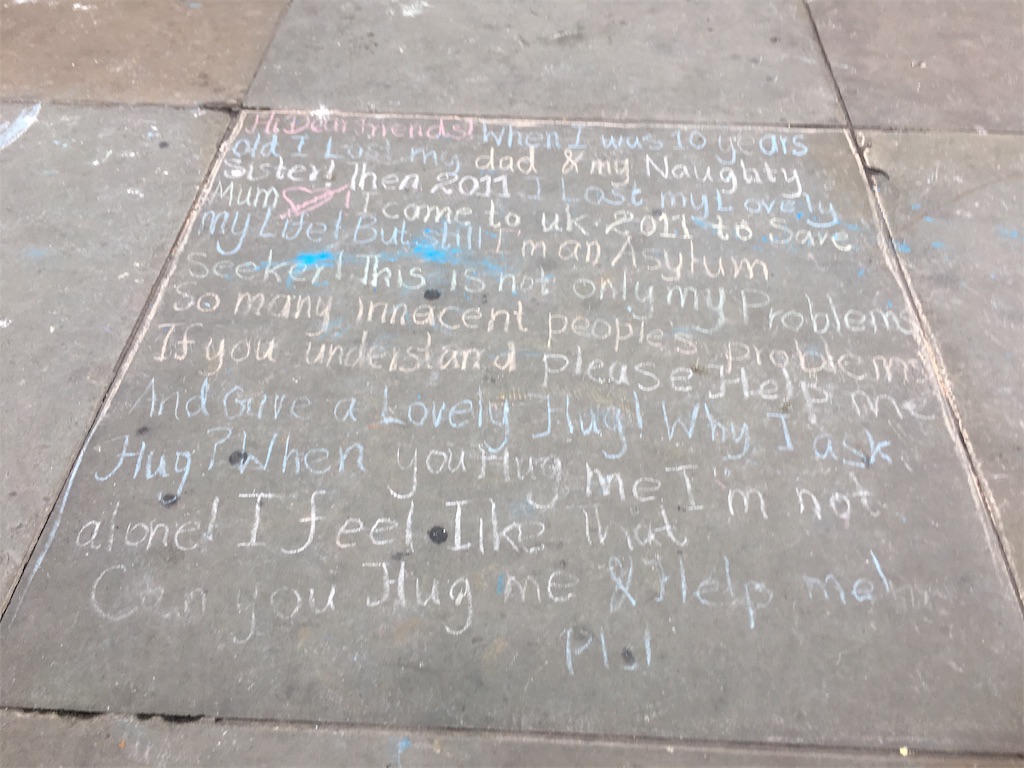 Hi Dear friends! When I was 10 years
old I Lost my dad & my Naughty
Sister! Then 2011 I Lost my Lovely
Mum ! I come to uk 2011 to Save
my Live! But still I'm an Asylum
Seeker! This is not only my Problem
So many innacent people's problem
If you understand please Help me
And Give a Lovely Hug! Why I ask
Hug? When you Hug me I'm not
alone! I feel Like that
Can you Hug me & Help me